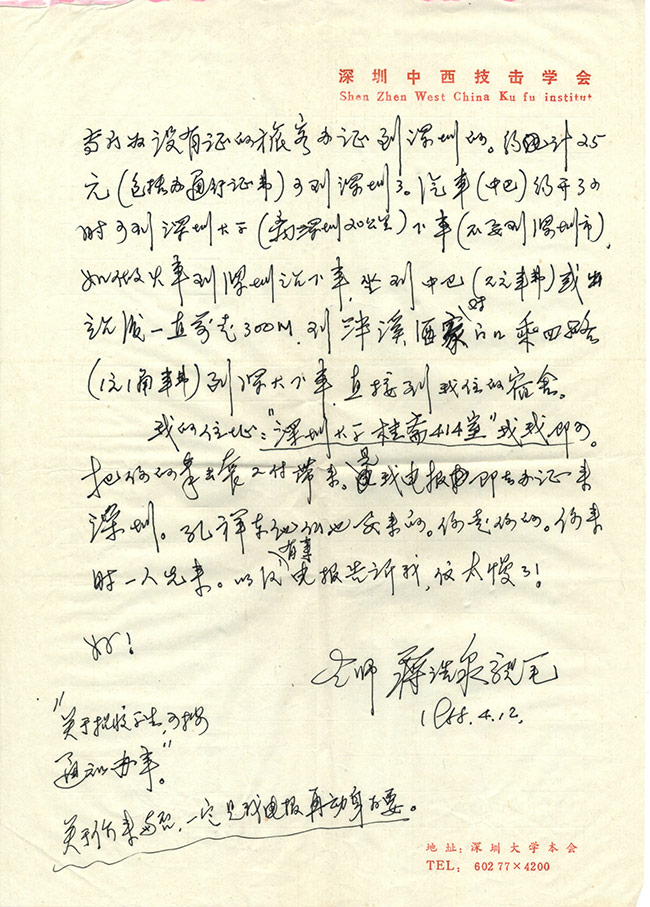 深圳中西技击学会
Shen Zhen West China Ku fu institut
专门为没有证的旅客办证到深圳的。约计25
元(包括办通行证费)可到深圳了。汽车(中巴)约开3小
时可到深圳大学(离深圳20公里)下车(不要到深圳市),
如做火车到深圳站下车,坐到中巴(2元车费)或出
站后一直前走300M,到泮溪酒家对门口乘四路
(1元1角车费)到深大下车,直接到我住的宿舍。
我的住址:"深圳大学桂斋414室"找我即可。
把你的拳击套二付带来。见我电报即去办证来
深圳。孔祥东他们也要来的。你走你的。你来
时一人先来。以后有事电报告诉我,信太慢了!
好!
老师 蒋浩泉亲笔
1988.4.12.
"关于招收学生,可按
通知办事"。
关于你来与否,一定见我电报再动身为要。
地址:深圳大学本会
TEL: 602 77×4200